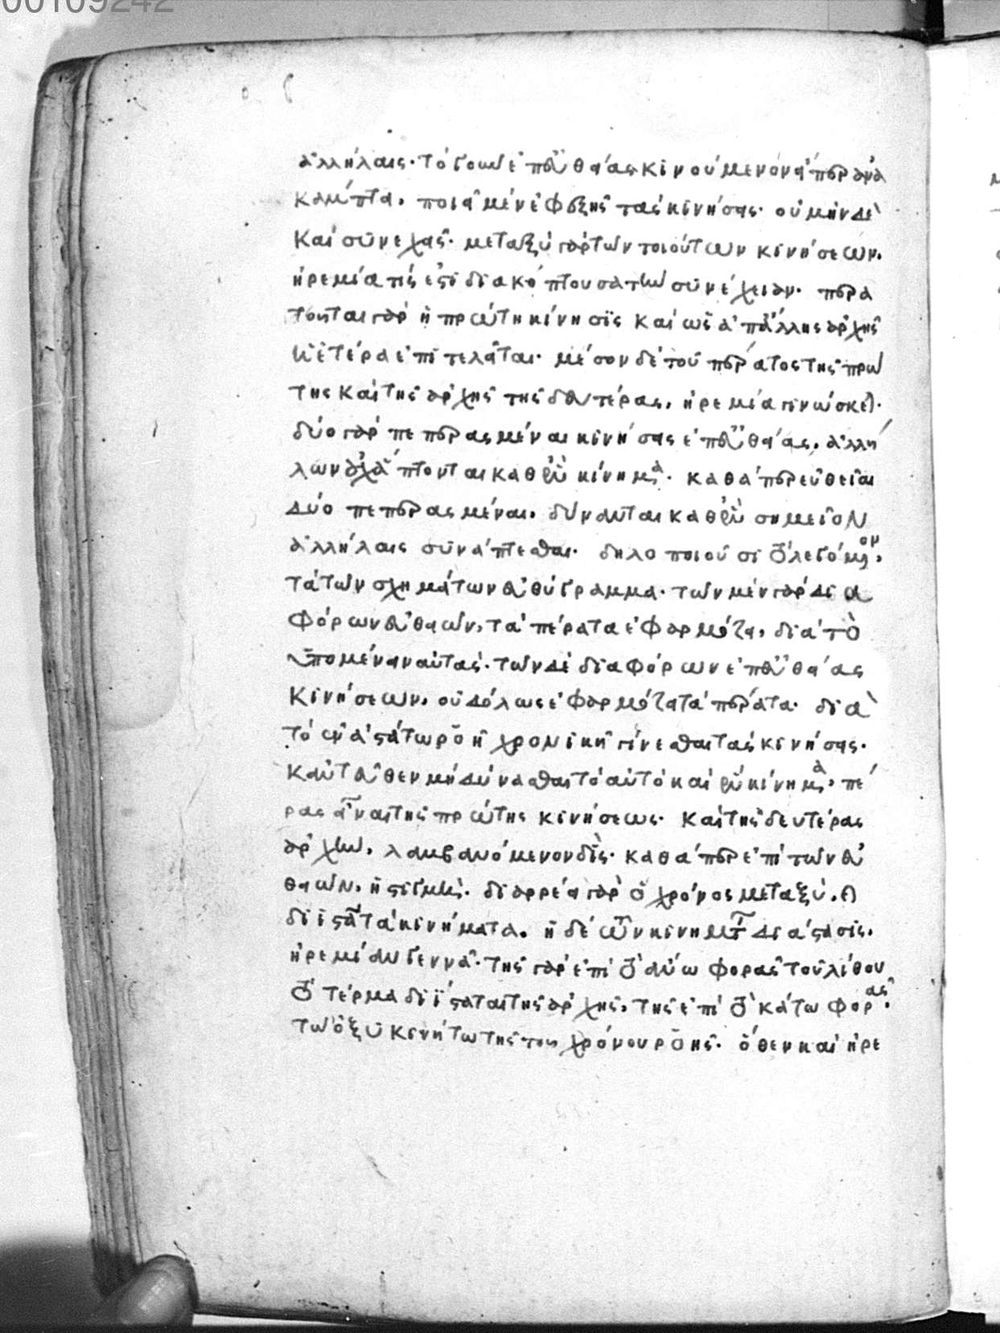 00109242
ἀλλήλαις· τὸ γοῦν ἐπ' εὐθείας κινούμενον ἅπερ ἀνα
κάμπτει, ποιεῖ μὲν ἐφεξῆς τὰς κινήσεις· οὐ μὴν δὲ
καὶ συνεχεῖς· μεταξὺ γὰρ τῶν τοιούτων κινήσεων,
ἠρεμία τίς ἐστι διακόπτουσα τὴν συνέχειαν· περα
τοῦται γὰρ ἡ πρώτη κίνησις καὶ ὡς ἀπ' ἄλλης ἀρχῆς
ἡ ἑτέρα ἐπιτελεῖται· μέσον δὲ τοῦ πέρατος τῆς πρώ
της καὶ τῆς ἀρχῆς τῆς δευτέρας, ἠρεμία γινώσκεται·
δύο γὰρ πεπερασμέναι κινήσεις ἐπ' εὐθείας, ἀλλή
λων οὐχ ἅπτονται καθ' ἓν κίνημα· καθάπερ εὐθεῖαι
δύο πεπερασμέναι, δύνανται καθ' ἓν σημεῖον
ἀλλήλαις συνάπτεσθαι· δηλοποιοῦσι τὸ λεγόμενον,
τὰ τῶν σχημάτων εὐθύγραμμα· τῶν μὲν γὰρ δια
φόρων εὐθειῶν, τὰ πέρατα ἐφαρμόζει, διὰ τὸ
ὑπομένειν αὐτάς· τῶν δὲ διαφόρων ἐπ' εὐθείας
κινήσεων, οὐδόλως ἐφαρμόζει τὰ πέρατα· διὰ
τὸ ἐν ἀστάτῳ ῥοῇ χρονικῇ γίνεσθαι τὰς κινήσεις·
κἀντεῦθεν μὴ δύνασθαι τὸ αὐτὸ καὶ ἓν κίνημα, πέ
ρας εἶναι τῆς πρώτης κινήσεως· καὶ τῆς δευτέρας
ἀρχὴν, λαμβανόμενον δίς· καθάπερ ἐπὶ τῶν εὐ
θειῶν, ἡ στιγμή· διαρρεῖ γὰρ ὁ χρόνος μεταξὺ, καὶ
διιστᾷ τὰ κινήματα. ἡ δὲ τῶν κινημάτων διάστασις,
ἠρεμίαν γεννᾷ· τῆς γὰρ ἐπὶ τὸ ἄνω φορᾶς τοῦ λίθου
τὸ τέρμα διίσταται τῆς ἀρχῆς, τῆς ἐπὶ τὸ κάτω φορᾶς·
τῷ ὀξυκινήτῳ τῆς τοῦ χρόνου ῥοῆς· ὅθεν καὶ ἠρε